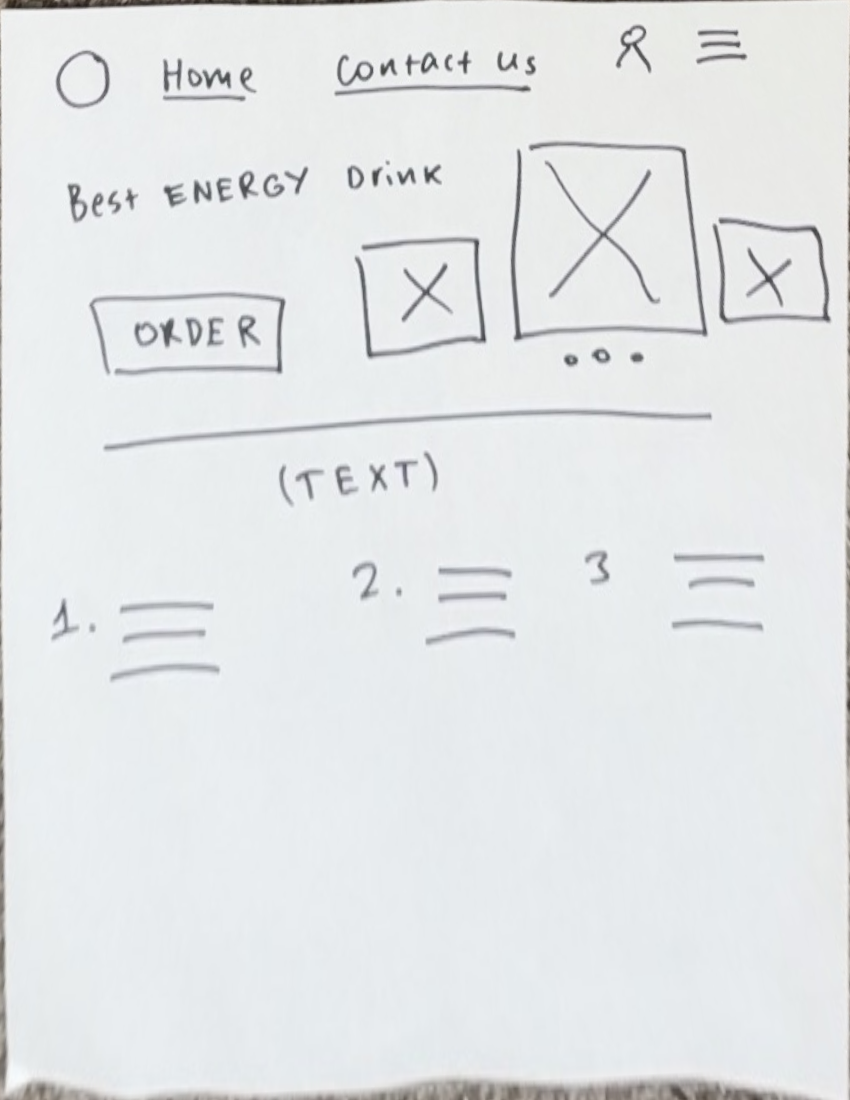 Home Contact us
Best ENERGY Drink
ORDER
(TEXT)
1. 2. 3